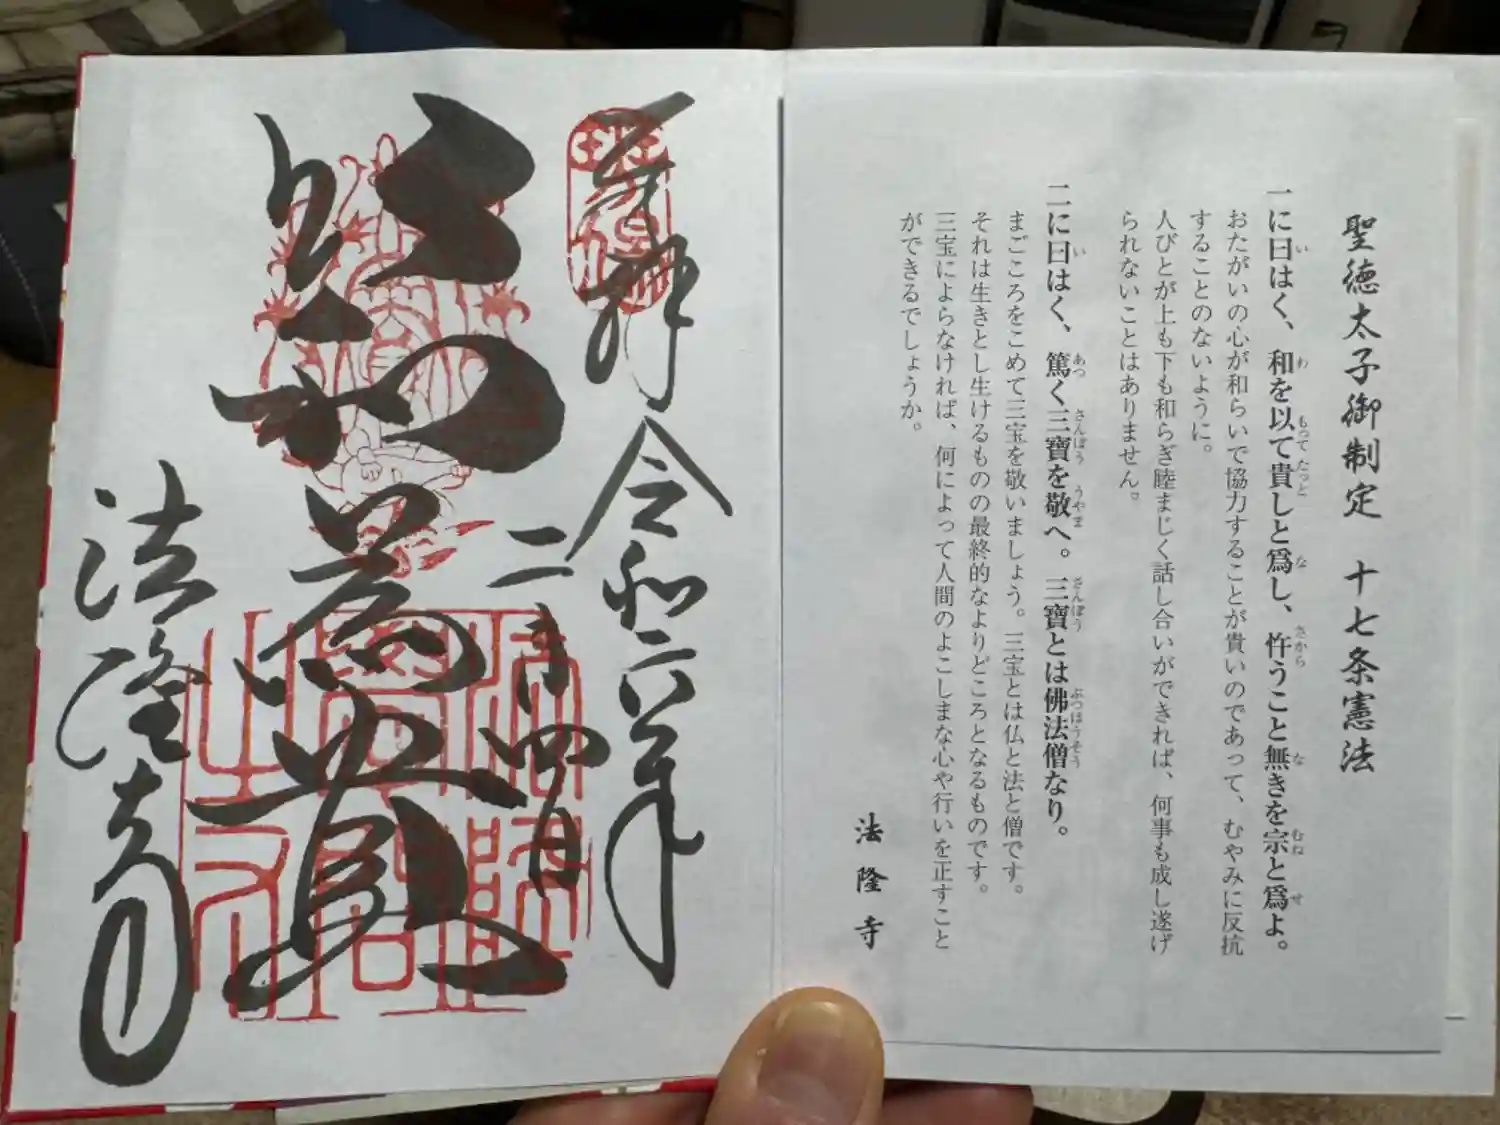 聖徳太子御制定 十七条憲法
一に曰はく、和を以て貴しと爲し、忤うこと無きを宗と爲よ。
おたがいの心が和らいで協力することが貴いのであって、むやみに反抗
することのないように。
人びとが上も下も和らぎ睦まじく話し合いができれば、何事も成し遂げ
られないことはありません。
二に曰はく、篤く三寶を敬へ。三寶とは佛法僧なり。
まごころをこめて三宝を敬いましょう。三宝とは仏と法と僧です。
それは生きとし生けるものの最終的なよりどころとなるものです。
三宝によらなければ、何によって人間のよこしまな心や行いを正すこと
ができるでしょうか。
法隆寺
奉拝 令和六年
二月四日
以和為貴
法隆寺